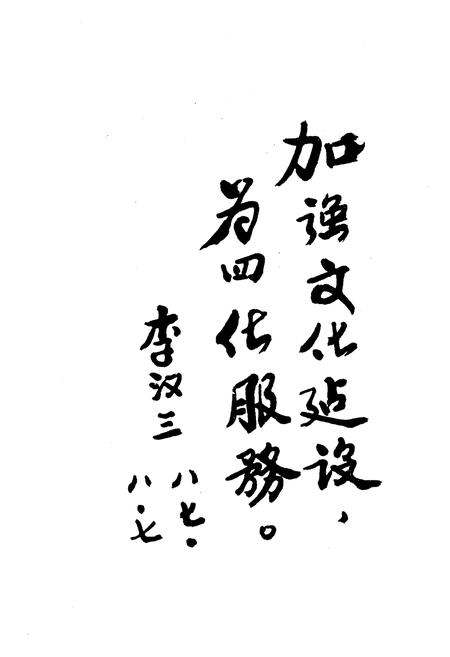 加强文化建设，
为四化服務。
李汉三
八七·
八·七